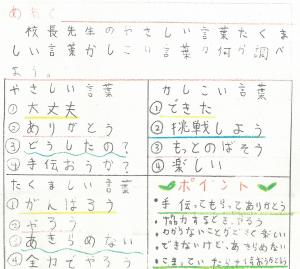 めあて
校長先生のやさしい言葉たくまし
い言葉かしこい言葉の何か調べ
よう。
やさしい言葉
①大丈夫
②ありがとう
③どうしたの？
④手伝おうか？
かしこい言葉
①できた
②挑戦しよう
③もっとのばそう
④楽しい
たくましい言葉
①がんばろう
②やろう
③あきらめない
④全力でやろう
ポイント
・手伝ってもらってありがとう
・協力するとき、やろう
・わからないことができて楽しい
・できないけど、あきらめない
・こまっていたら手伝おうという